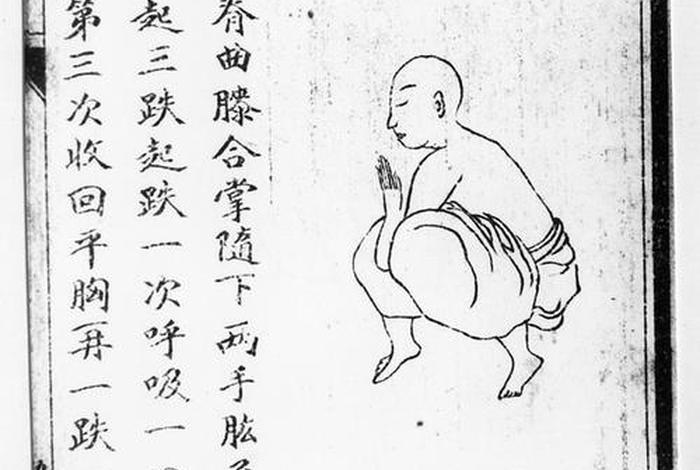 脊曲膝合掌隨下两手肱
起三跌起跌一次呼吸一
第三次收回平胸再一跌